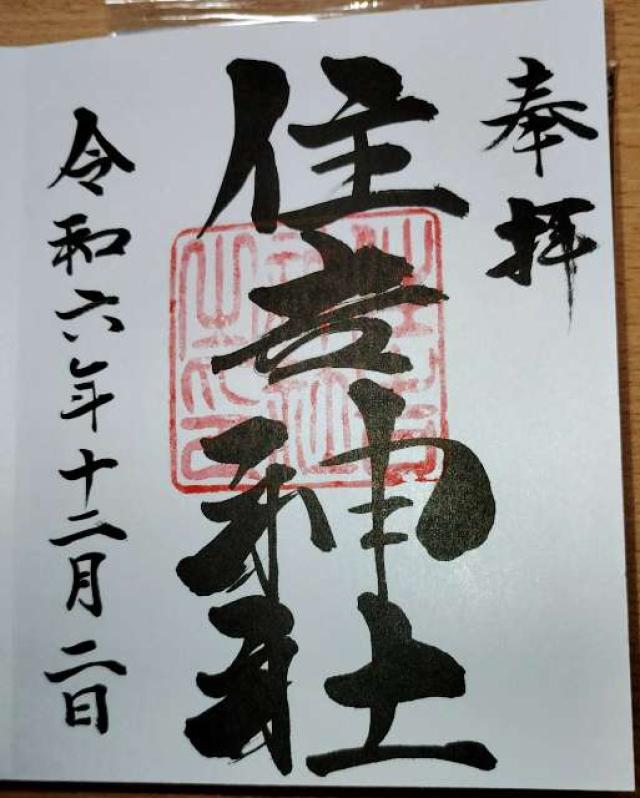 奉拝
住吉神社
令和六年十二月二日